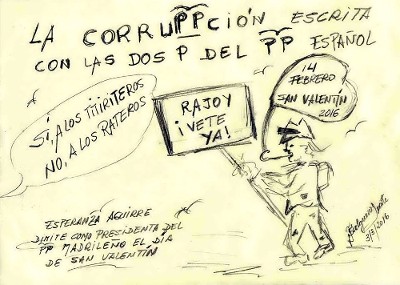 LA CORRUPPCIÓN ESCRITA
CON LAS DOS P DEL PP ESPAÑOL
14
FEBRERO
SAN VALENTÍN
2016
SI, A LOS TIIIRITEROS
NO, A LOS RATEROS
RAJOY
¡VETE
YA!
ESPERANZA AGUIRRE
DIMITE COMO PRESIDENTA DEL
PP MADRILEÑO EL DÍA
DE SAN VALENTÍN
2016